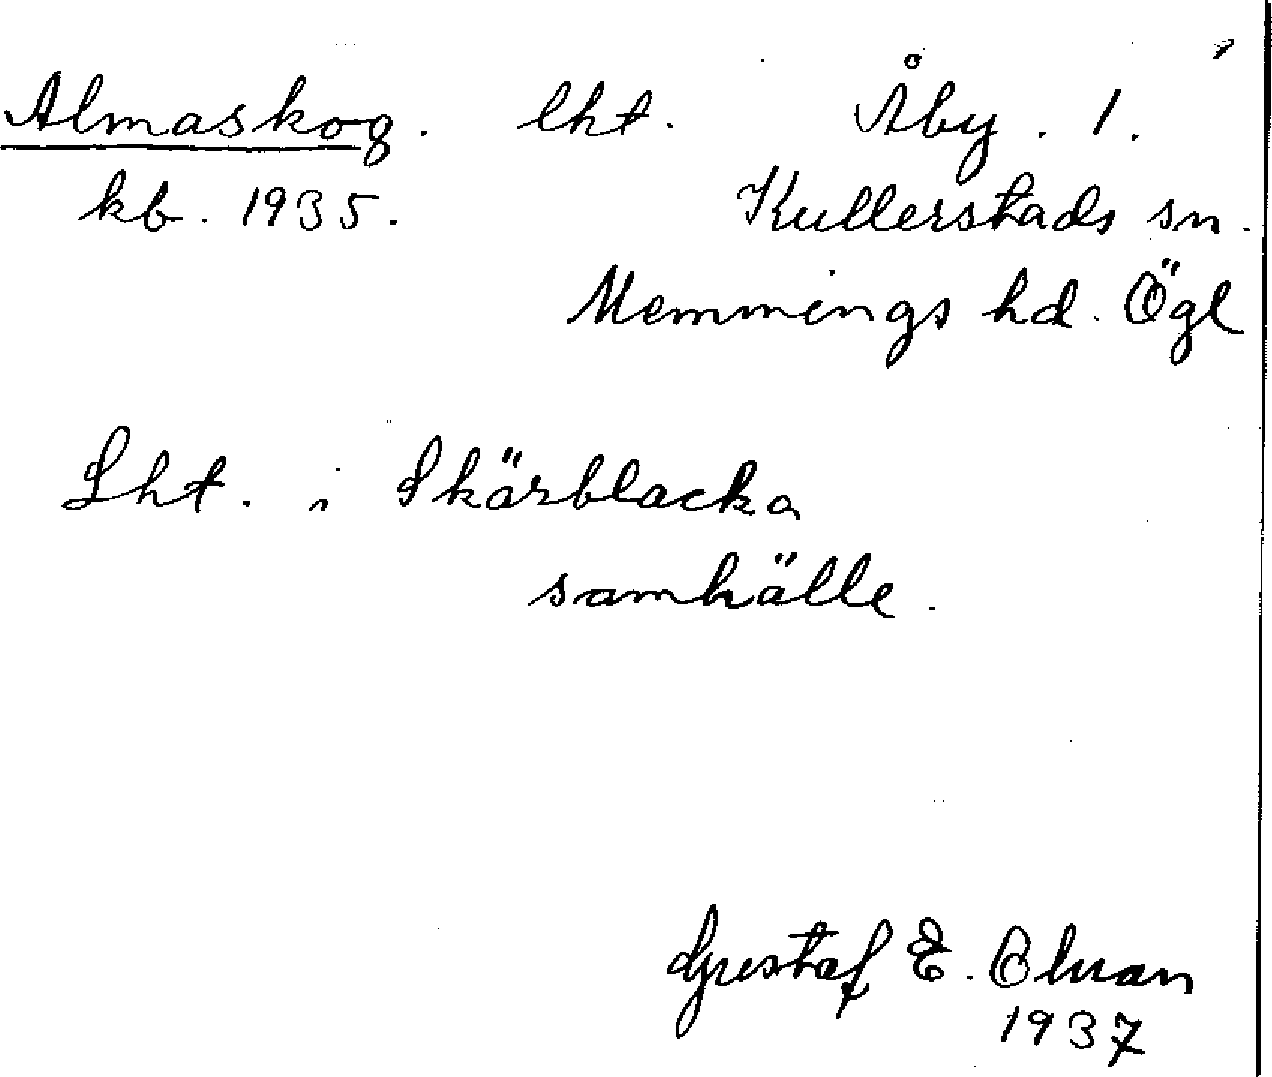 Almaskog. lht. Åby. 1.
kb. 1935. Kullerstads sn.
Memmings hd. Ögl
Lht. i Skärblacka
samhälle.
Gustaf E.
1937